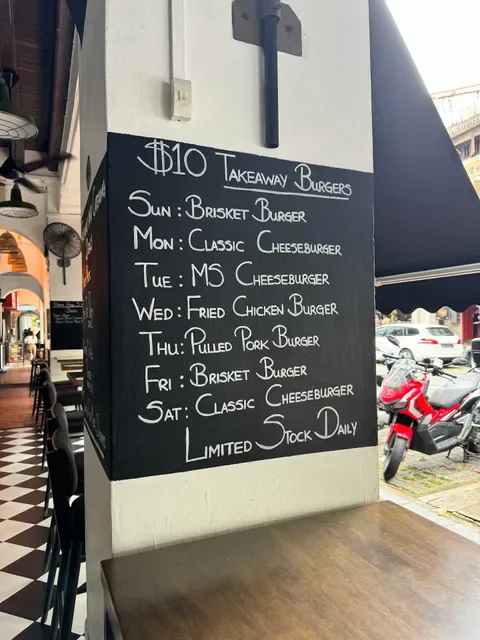 $10 Takeaway Burgers
Sun: Brisket Burger
Mon: Classic Cheeseburger
Tue: MS Cheeseburger
Wed: Fried Chicken Burger
Thu: Pulled Pork Burger
Fri: Brisket Burger
Sat: Classic Cheeseburger
Limited Stock Daily